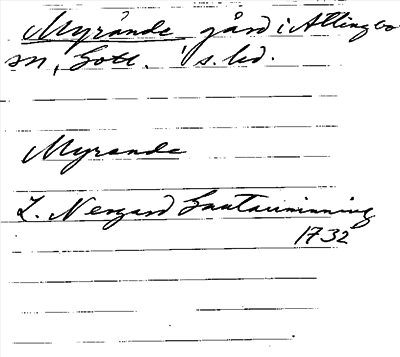 Myrånde gård i Atlingbo
sn, Gotl. s.led.
Myrande
L. Nergard Gautauminning
1732